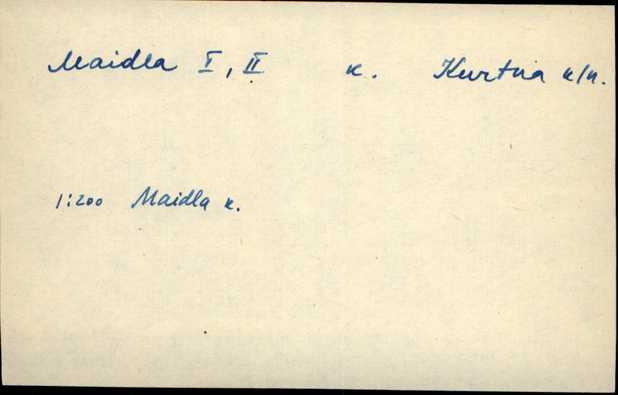 Maidla I, II k. Kurtna k/n.
1:200 Maidla k.